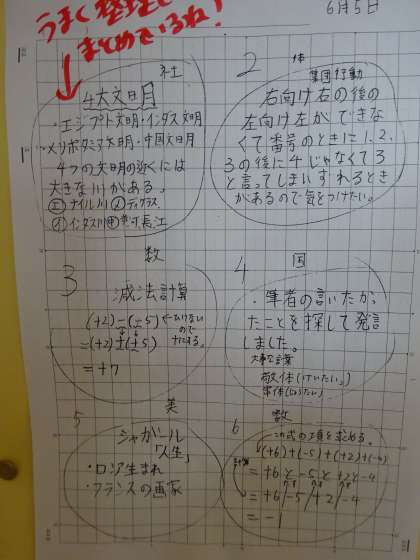 うまく整理して
まとめているね!
6月5日
1 社
4大文明
・エジプト文明・インダス文明
・メソポタミア文明・中国文明
4つの文明の近くには
大きな川がある。
エ ナイル川 メ チグリス
イ インダス川 中 黄河、長江
2 体
集団行動
右向け右の後の
左向け左ができな
くて番号のときに1.2.
3の後に4じゃなくて3
と言ってしまいずれるとき
があるので気をつけたい。
3 数
減法計算
(+2)-(-5)
=(+2)+(+5)
=+7
4 国
・筆者の言いたかっ
たことを探して発言
しました。
大事な言葉
敬体(けいたい)
常体(じょうたい)
5 美
シャガール
「人生」
・ロシア生まれ
・フランスの画家
6 数
この式の項を求める。
(+6)+(-5)+(+2)+(-4)
=+6と-5と+2と-4
=+6/-5/+2/-4
=-1